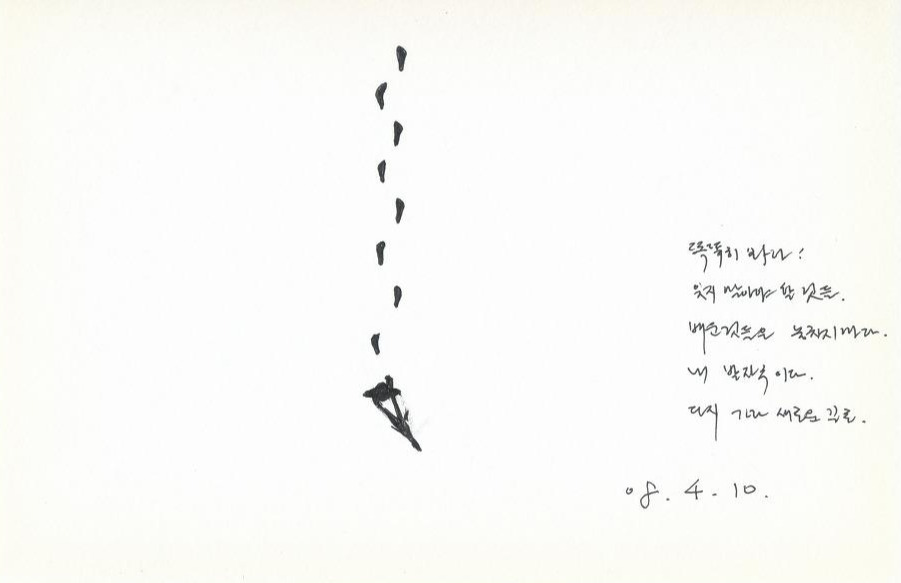 똑똑히 봐라!
잊지 말아야 할 것들.
배운것들을 놓치지마라.
내 발자욱 이다.
다시 가라 새로운 길로.
08. 4. 10.